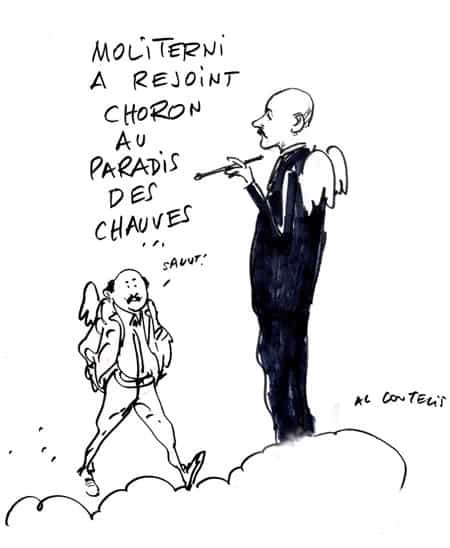 MOLiTERNi
A REJOiNT
CHORON
AU
PARADIS
DES
CHAUVES
SALUT!
AL COUTELIS